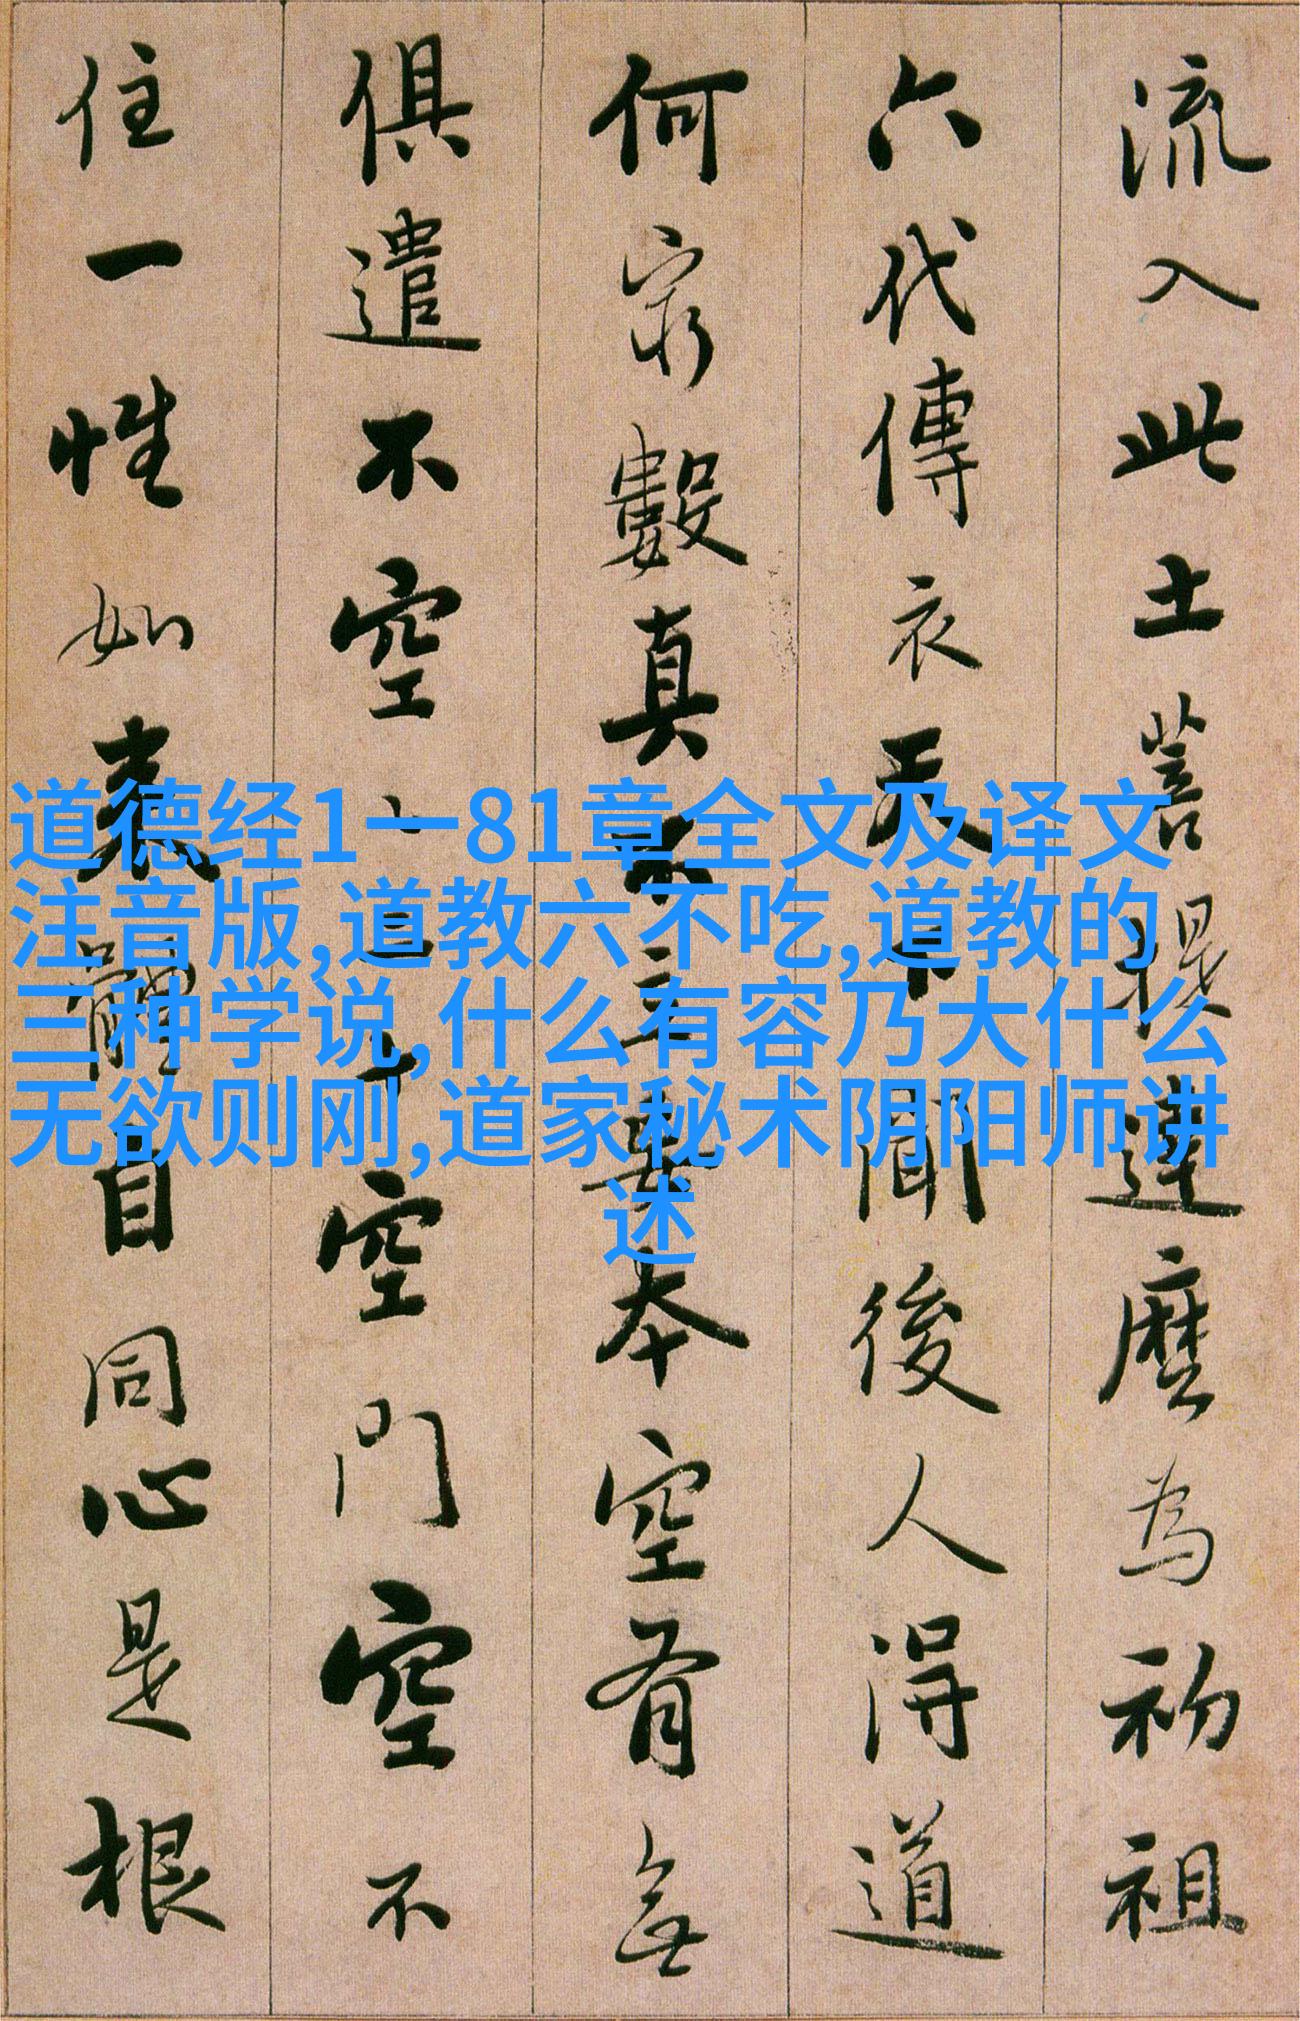 流入此土菩提達麼為初祖
六代傳衣天下聞後人得道
何窮數真不立妄本空有無
俱遣不空〻二十空門空不
住一性如來體自同心是根
道德经1一81章全文及译文
注音版,道教六不吃,道教的
三种学说,什么有容乃大什么
无欲则刚,道家秘术阴阳师讲
述